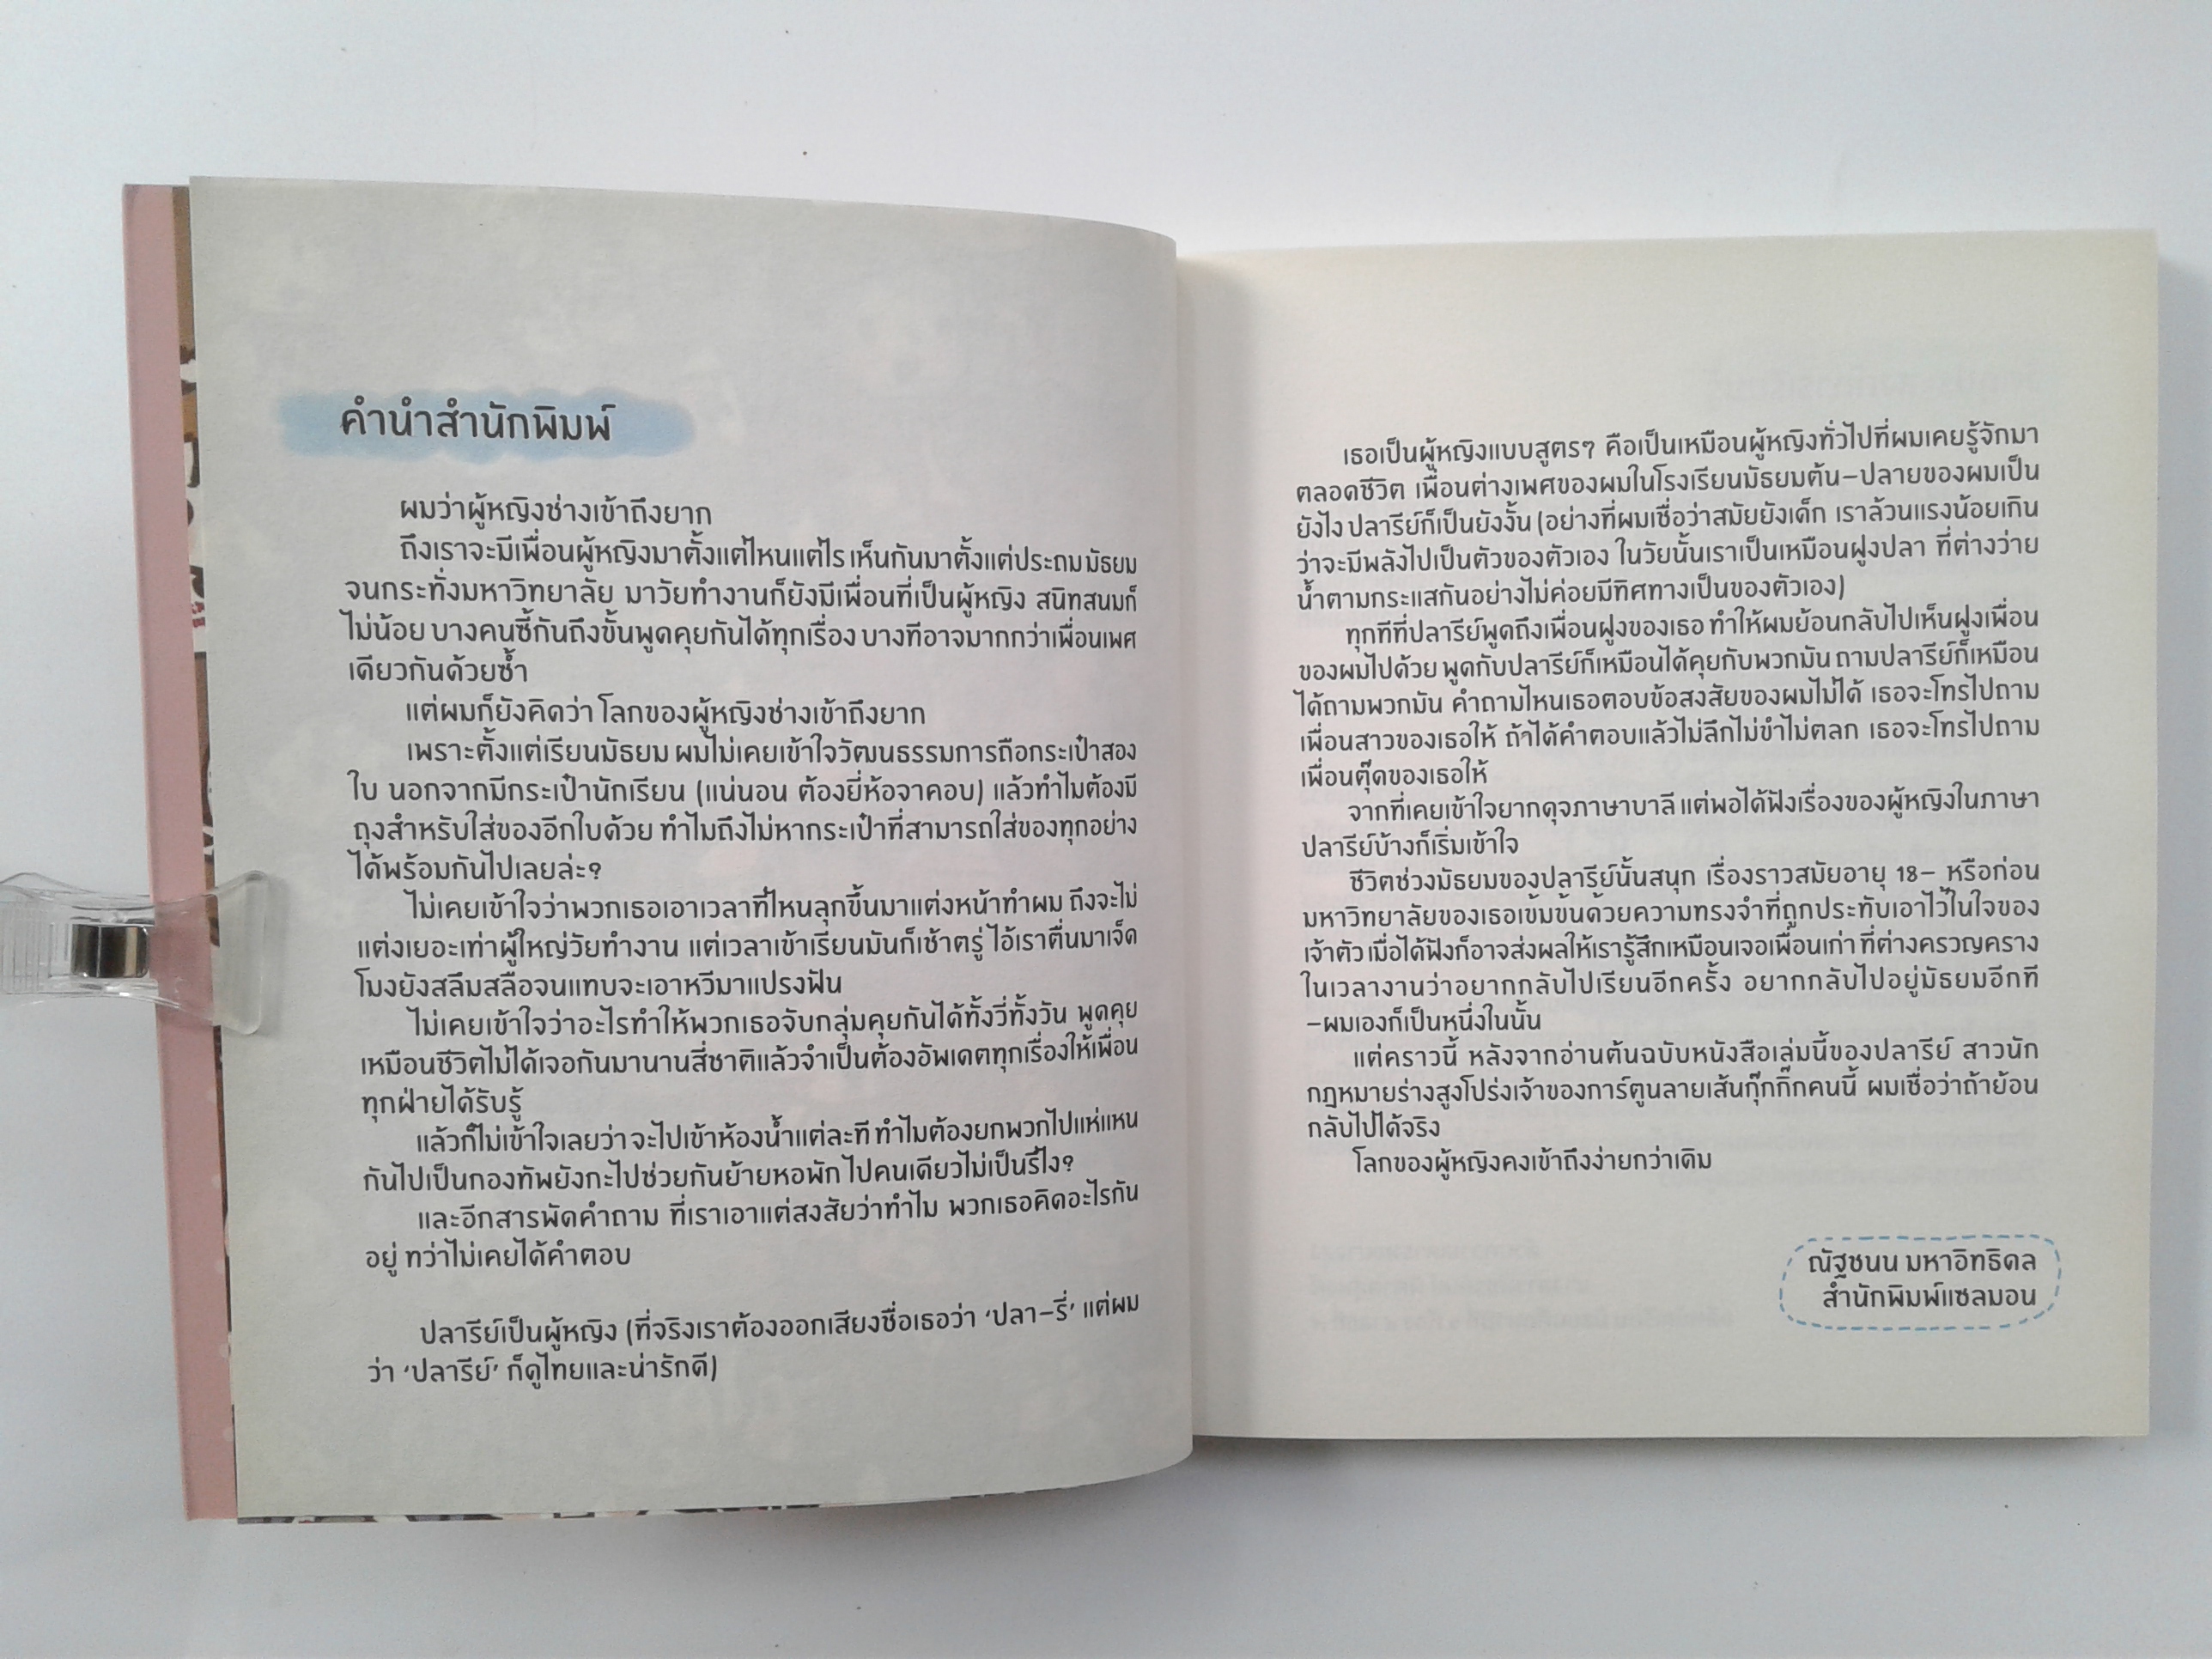 คำนำสำนักพิมพ์
ผมว่าผู้หญิงช่างเข้าถึงยาก
ถึงเราจะมีเพื่อนผู้หญิงมาตั้งแต่ไหนแต่ไร เห็นกันมาตั้งแต่ประถม มัธยม
จนกระทั่งมหาวิทยาลัย มาวัยทำงานก็ยังมีเพื่อนที่เป็นผู้หญิง สนิทสนมก็
ไม่น้อย บางคนซี้กันถึงขั้นพูดคุยกันได้ทุกเรื่อง บางทีอาจมากกว่าเพื่อนเพศ
เดียวกันด้วยซ้ำ
แต่ผมก็ยังคิดว่า โลกของผู้หญิงช่างเข้าถึงยาก
เพราะตั้งแต่เรียนมัธยม ผมไม่เคยเข้าใจวัฒนธรรมการถือกระเป๋าสอง
ใบ นอกจากมีกระเป๋านักเรียน (แน่นอน ต้องยี่ห้อจาคอบ) แล้วทำไมต้องมี
ถุงสำหรับใส่ของอีกใบด้วย ทำไมถึงไม่หากระเป๋าที่สามารถใส่ของทุกอย่าง
ได้พร้อมกันไปเลยล่ะ?
ไม่เคยเข้าใจว่าพวกเธอเอาเวลาที่ไหนลุกขึ้นมาแต่งหน้าทำผม ถึงจะไม่
แต่งเยอะเท่าผู้ใหญ่วัยทำงาน แต่เวลาเข้าเรียนมันก็เช้าตรู่ ไอ้เราตื่นมาเจ็ด
โมงยังสลึมสลือจนแทบจะเอาหวีมาแปรงฟัน
ไม่เคยเข้าใจว่าอะไรทำให้พวกเธอจับกลุ่มคุยกันได้ทั้งวี่ทั้งวัน พูดคุย
เหมือนชีวิตไม่ได้เจอกันมานานสี่ชาติแล้วจำเป็นต้องอัพเดตทุกเรื่องให้เพื่อน
ทุกฝ่ายได้รับรู้
แล้วก็ไม่เข้าใจเลยว่า จะไปเข้าห้องน้ำแต่ละที ทำไมต้องยกพวกไปแห่แหน
กันไปเป็นกองทัพยังกะไปช่วยกันย้ายหอพัก ไปคนเดียวไม่เป็นรึไง?
และอีกสารพัดคำถาม ที่เราเอาแต่สงสัยว่าทำไม พวกเธอคิดอะไรกัน
อยู่ ทว่าไม่เคยได้คำตอบ
ปลารีย์เป็นผู้หญิง (ที่จริงเราต้องออกเสียงชื่อเธอว่า ‘ปลา-รี่’ แต่ผม
ว่า ‘ปลารีย์’ ก็ดูไทยและน่ารักดี)
เธอเป็นผู้หญิงแบบสูตรๆ คือเป็นเหมือนผู้หญิงทั่วไปที่ผมเคยรู้จักมา
ตลอดชีวิต เพื่อนต่างเพศของผมในโรงเรียนมัธยมต้น-ปลายของผมเป็น
ยังไง ปลารีย์ก็เป็นยังงั้น (อย่างที่ผมเชื่อว่าสมัยยังเด็ก เราล้วนแรงน้อยเกิน
ว่าจะมีพลังไปเป็นตัวของตัวเอง ในวัยนั้นเราเป็นเหมือนฝูงปลา ที่ต่างว่าย
น้ำตามกระแสกันอย่างไม่ค่อยมีทิศทางเป็นของตัวเอง)
ทุกทีที่ปลารีย์พูดถึงเพื่อนฝูงของเธอ ทำให้ผมย้อนกลับไปเห็นฝูงเพื่อน
ของผมไปด้วย พูดกับปลารีย์ก็เหมือนได้คุยกับพวกมัน ถามปลารีย์ก็เหมือน
ได้ถามพวกมัน คำถามไหนเธอตอบข้อสงสัยของผมไม่ได้ เธอจะโทรไปถาม
เพื่อนสาวของเธอให้ ถ้าได้คำตอบแล้วไม่ลึกไม่ขำไม่ตลก เธอจะโทรไปถาม
เพื่อนตุ๊ดของเธอให้
จากที่เคยเข้าใจยากดุจภาษาบาลี แต่พอได้ฟังเรื่องของผู้หญิงในภาษา
ปลารีย์บ้างก็เริ่มเข้าใจ
ชีวิตช่วงมัธยมของปลารีย์นั้นสนุก เรื่องราวสมัยอายุ 18- หรือก่อน
มหาวิทยาลัยของเธอเข้มข้นด้วยความทรงจำที่ถูกประทับเอาไว้ในใจของ
เจ้าตัว เมื่อได้ฟังก็อาจส่งผลให้เรารู้สึกเหมือนเจอเพื่อนเก่า ที่ต่างครวญคราง
ในเวลางานว่าอยากกลับไปเรียนอีกครั้ง อยากกลับไปอยู่มัธยมอีกที
-ผมเองก็เป็นหนึ่งในนั้น
แต่คราวนี้ หลังจากอ่านต้นฉบับหนังสือเล่มนี้ของปลารีย์ สาวนัก
กฎหมายร่างสูงโปร่งเจ้าของการ์ตูนลายเส้นกุ๊กกิ๊กคนนี้ ผมเชื่อว่าถ้าย้อน
กลับไปได้จริง
โลกของผู้หญิงคงเข้าถึงง่ายกว่าเดิม
ณัฐชนน มหาอิทธิดล
สำนักพิมพ์แซลมอน